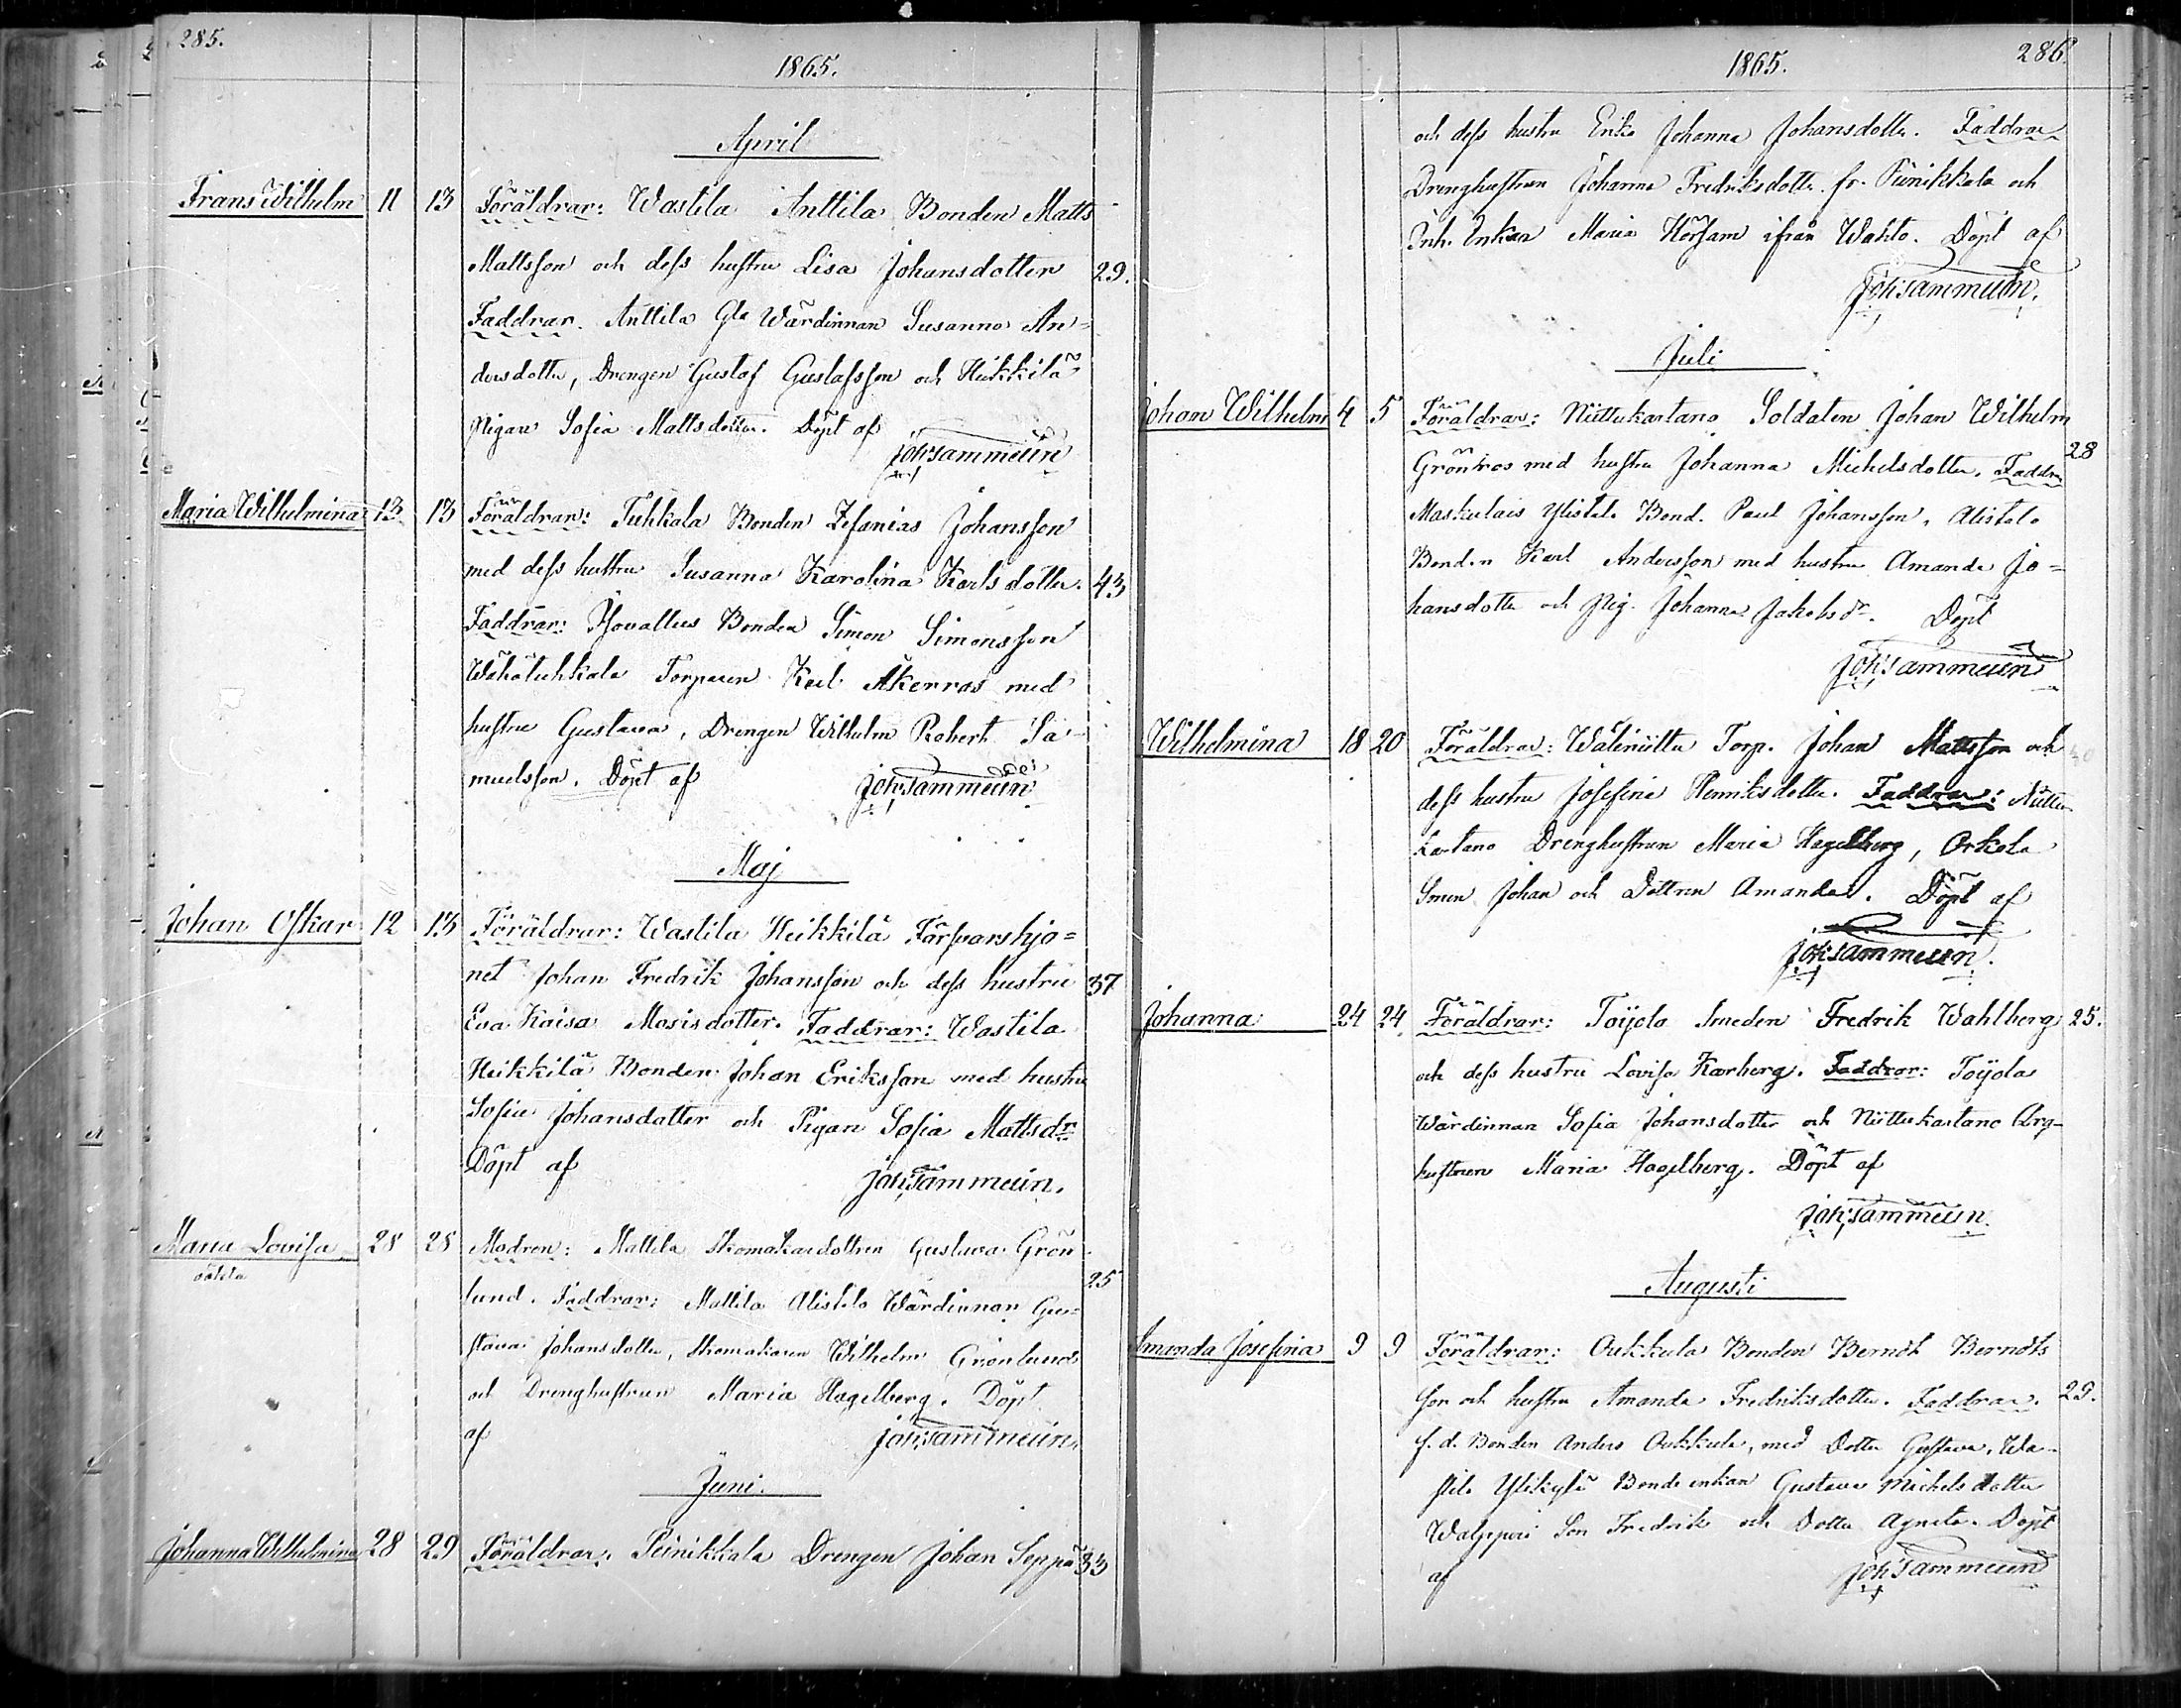 285.
1865.
April
Frans Wilhelm 11 13 Föräldrar: Wastila Anttila Bonden Matts
Mattsson och dess hustru Lisa Johansdotter 29.
Faddrar. Anttila Gla Wärdinnan Susanna An=
dersdotter, Drengen Gustaf Gustafsson och Heikkilä
Pigan Sofia Mattsdotter. Döpt af
Joh: Sammeun
Maria Wilhelmina 13 13 Föräldrar: Tuhkala Bonden Zefanias Johansson
med dess hustru Susanna Karolina Karlsdotter. 43
Faddrar: Isovallus Bonden Simon Simonsson
Wähätuhkala Torparen Karl Åkerros med
hustru Gustava, Drengen Wilhelm Robert Sa-
muelsson. Döpt af Joh: Sammeun
Maj
Johan Oskar 12 13 Föräldrar: Wastila Heikkilä Försvarshjo=
net Johan Fredrik Johansson och dess hustru 37
Eva Kaisa Mosisdotter. Faddrar: Wastila
Heikkilä Bonden Johan Eriksson med hustru
Sofia Johansdotter och Pigan Sofia Mattsdr
Döpt af Joh: Sammeun.
Maria Lovisa 28 28 Modren: Mattila Skomakardottren Gustava Grön
oäkta
lund. Faddrar: Mattila Alistalo Wärdinnan Gus= 25
tava Johansdotter, Skomakaren Wilhelm Grönlund
och Drenghustrun Maria Hagelberg. Döpt
af Joh: Sammeun.
Juni.
Johanna Wilhelmina 28 29 Föräldrar. Piinikkala Drengen Johan Seppä 33
1865. 286.
och dess hustru Erika Johanna Johansdotter. Faddrar
Drenghustrun Johanna Fredriksdotter fr. Piinikkala och
Inh. Enkan Maria Hörsam ifrån Wahto. Döpt af
Joh: Sammeun.
Juli
Johan Wilhelm 4 5 Föräldrar: Niittukartano Soldaten Johan Wilhelm
Grönroos med hustru Johanna Michelsdotter. Faddra 28
Maskulais Ylistalo Bond. Paul Johansson, Alistalo
Bonden Karl Andersson med hustru Amanda Jo=
hansdotter och Pig. Johanna Jakobsdr. Döpt
Joh: Sammeun
Wilhelmina 18 20 Föräldrar: Waliniittu Torp. Johan Mattsson och
dess hustru Josefina Henriksdotter. Faddrar: Niittu
kartano Drenghustrun Maria Hagelberg, Orkola
Sonen Johan och Dottren Amanda. Döpt af
Joh: Sammeun.
Johanna 24 24 Föräldrar: Toijola Smeden Fredrik Wahlberg 25.
och dess hustru Lovisa Karberg. Faddrar: Toijola
Wärdinnan Sofia Johansdotter och Niittukartano Drg-
hustrun Maria Hagelberg. Döpt af
Joh: Sammeun.
Augusti
Amanda Josefina 9 9 Föräldrar: Oukkula Bonden Berndt Berndts
son och hustru Amanda Fredriksdotter. Faddrar. 29.
f. d. Bonden Anders Oukkula, med Dotter Gustava, Wa-
stila Ylikylä Bonde enkan Gustava Michelsdotter
Walpperi Son Fredrik och Dotter Agneta. Döpt
af Joh: Sammeun